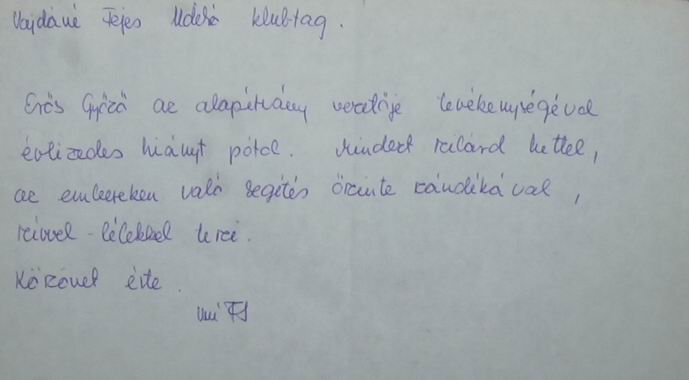 Vajdáné Fejes Udéké klubtag.
Erős Győző az alapítvány vezetője tevékenységével
évtizedes hiányt pótol. Mindezt szilárd hittel,
az embereken való segítés őszinte szándékával,
szívvel-lélekkel teszi.
Köszönet érte.